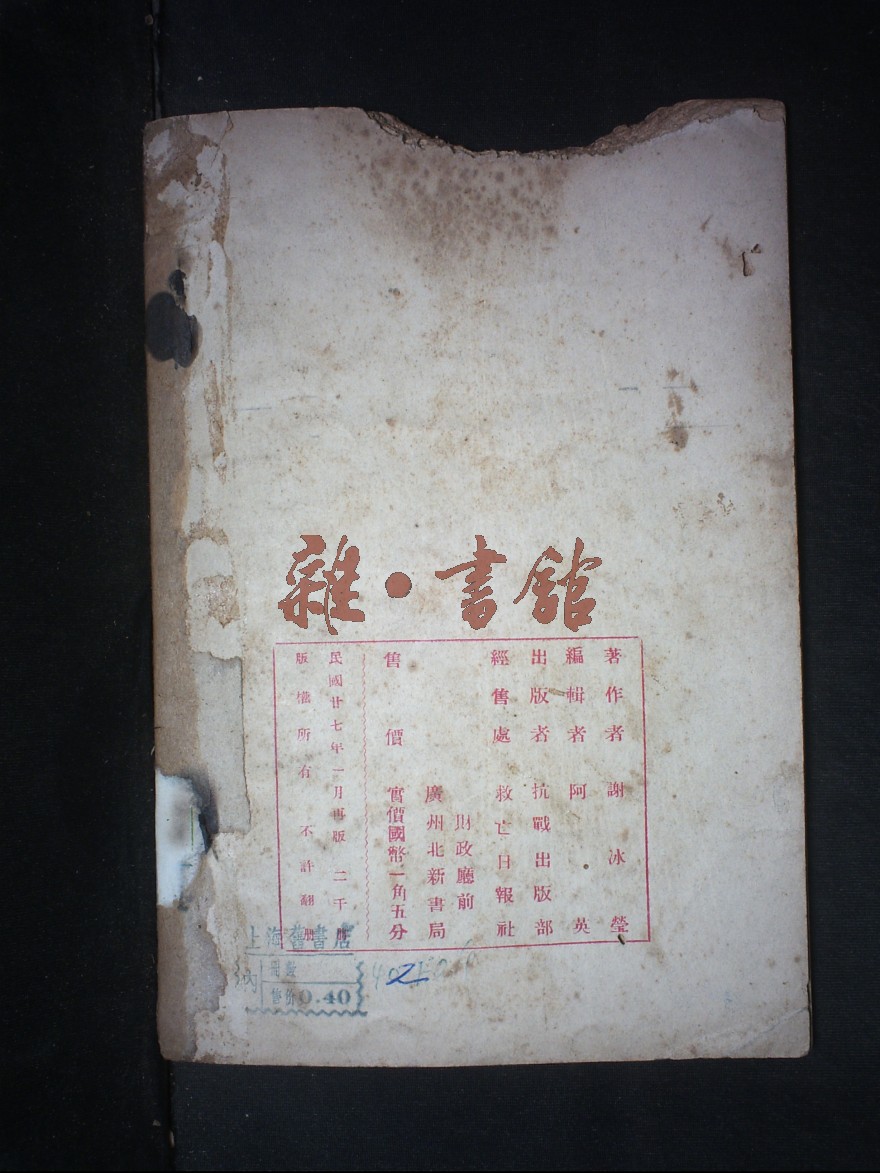 雜·書館
著作者 謝冰瑩
編輯者 阿英
出版者 抗戰出版部
經售處 救亡日報社
財政廳前
廣州北新書局
售價 實價國幣一角五分
民國廿七年一月再版 二千冊
版權所有 不許翻
上海舊書店
冊數
售价 0.40